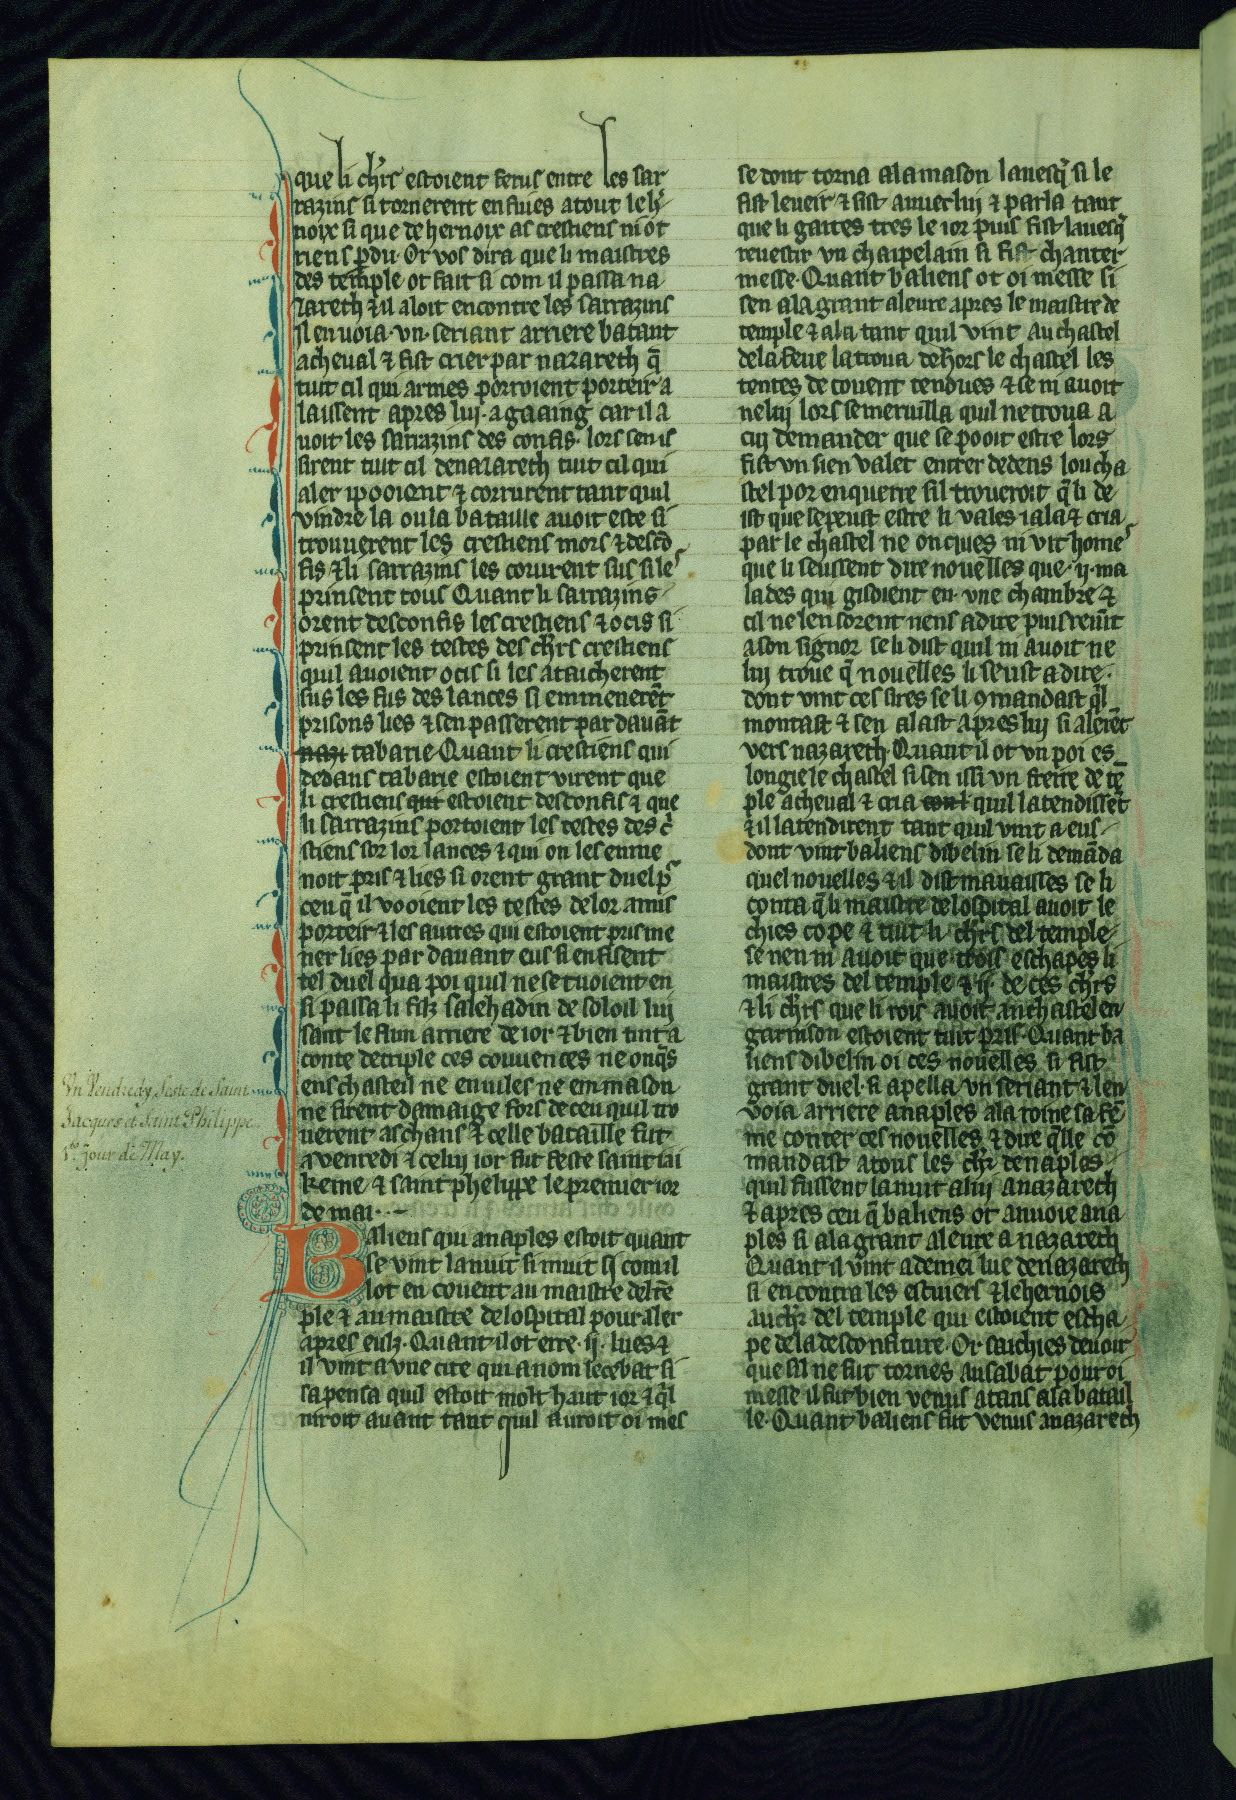 que li chrs estoient ferus entre les sar
razins si tornerent en fuies a tout le h̾
noix si que de hernoix as crestiens ni ot
riens pdu. Or vos dira que li maistres
des temple ot fait si com il passa na
zareth ⁊ il aloit encontre les sarrazins
Il enuoia .vn. seriant arriere batant
a cheual ⁊ fist crier par nazareth q̄
tuit cil qui armes porroient porteir a
laissent apres luj. a gaaing car il a
uoit les sarrazins des confis. lors sen is
sirent tuit cil de nazareth tuit cil qui
aler ipooient ⁊ corrurent tant quil
vindrē la ou la bataille auoit este si
trouuerent les crestiens mors ⁊ descō
fis ⁊ li sarrazins les corurent sus si le
prinsent tous Quant li sarrazins
orent desconfis les crestiens ⁊ ocis si
prinsent les testes des chrs crestiens
quil auoient ocis si les ataicherent
sus les fus des lances si emmenerēt
prisons lies ⁊ sen passerent par dauāt
nazr tabarie Quant li crestiens qui
dedans tabarie estoient virent que
li crestiens qui estoient desconfis ⁊ que
li sarrazins portoient les testes des c̾
stiens sor lor lances ⁊ qui on les enme
noit pris ⁊ lies si orent grant duel p̾
ceu q̄ il vooient les testes de lor amis
porteir ⁊ les autres qui estoient pris me
ner lies par dauant eus si en fisent
tel duel qua poi quil ne se tuoient en
si passa li fiz salehadin de soloil lui
sant le flun arriere de ior ⁊ bien tint a
conte de triple ces couuences ne onqs
ens chasteil ne en uiles ne em mason
ne firent damaige fors de ceu quil tro
uerent as chans ⁊ celle bataille fut
a venredi ⁊ celuj ior fut feste saint iai
keme ⁊ saint phelippe le premier ior
de mai.
Baliens qui a naples estoit quant
se vint la nuit si muit si com il
lot en couent au maistre del tē
ple ⁊ au maistre de lospital pour aler
apres eulz. Quant il ot erre .ij. lues ⁊
il vint a vne cite qui a nom le cebat si
sa pensa quil estoit molt haut ior ⁊ ql
niroit auant tant quil auroit oi mes
se dont torna a la mason lauesq̄ si le
fist leueir ⁊ sist auuec luj ⁊ parla tant
que li gaites tres le ior puis fist lauesq̄
reuestir vn chaipelain si fist chanter
messe. Quant baliens ot oi messe si
sen ala grant aleure apres le maistre de
temple ⁊ ala tant quil vint au chastel
de la feue la troua dehors le chastel les
tentes de couent tendues ⁊ se ni auoit
neluj lors se meruilla quil ne troua a
cuj demander que se pooit estre lors
fist vn sien valet entrer dedens lou cha
stel por enquerre sil troueroit q̄ li de
ist que se peust estre li vales i ala ⁊ cria
par le chastel ne onques ni vit home
que li seussent dire nouelles que .ij. ma
lades qui gisoient en vne chambre ⁊
cil ne len sorent riens a dire puis reuīt
a son signor se li dist quil ni auoit ne
luj troue q̄ nouelles li seust a dire.
dont vint ces sires se li 9mandast ql
montast ⁊ sen alast apres luj si alerēt
vers nazareth. Quant il ot vn poi es
longie le chastel si sen issi vn freire de tē
ple a cheual ⁊ cria quil latendissēt
⁊ il latendirent tant quil vint a eus
dont vint baliens dibelin se li demāda
quel nouelles ⁊ il dist mauaisses se li
conta q̄ li maistre de lospital auoit le
chies cope ⁊ tuit li chrs del temple
se nen ni auoit que trois eschapes li
maistres del temple ⁊ ij. de ces chrs
⁊ li chrs que li rois auoit an chastel en
garnison estoient tuit pris. Quant ba
liens dibelin oi ces nouelles si fist
grant duel. si apella vn seriant ⁊ len
voia arriere a naples a la roine sa fē
me conter ces nouelles ⁊ dire qlle cō
mandast a tous les chrs de naples
quil fussent la nuit a luj a nazareth
⁊ apres ceu q̄ baliens ot anuoie a na
ples si ala grant aleure a nazareth
Quant il vint a demei lue de nazareth
si encontra les escuiers ⁊ le hernois
au chrs del temple qui estoient escha
pe de la desconfiture. Or saichies de uoir
que sil ne fut tornes au sabat pour oi
messe il fut bien venus a tans a la batail
le. Quant baliens fut venus a nazareth
Vn Vendredy Feste de Saint
Jacques et Saint Philippe
1er jour de May.